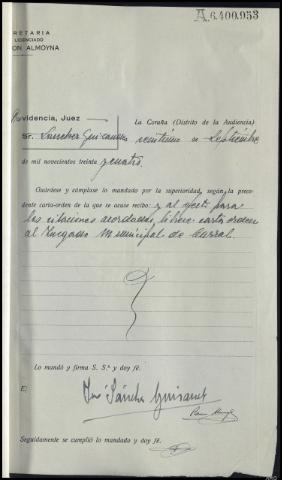 A.6.400.953
RETARIA
LICENCIADO
ON ALMOYNA
Providencia, Juez
La Coruña (Distrito de la Audiencia)
Sr. Sánchez Guisande
veintiuno de Septiembre
de mil novecientos treinta y cuatro.
Guárdese y cúmplase lo mandado por la superioridad, según la prece-
dente carta-orden de la que se acuse recibo; y al efecto para
las citaciones acordadas, líbrese carta orden
al Juzgado Municipal de Carral.
Lo mandó y firma S. S.ª y doy fé.
E:
José Sánchez Guisande
Seguidamente se cumplió lo mandado y doy fé.